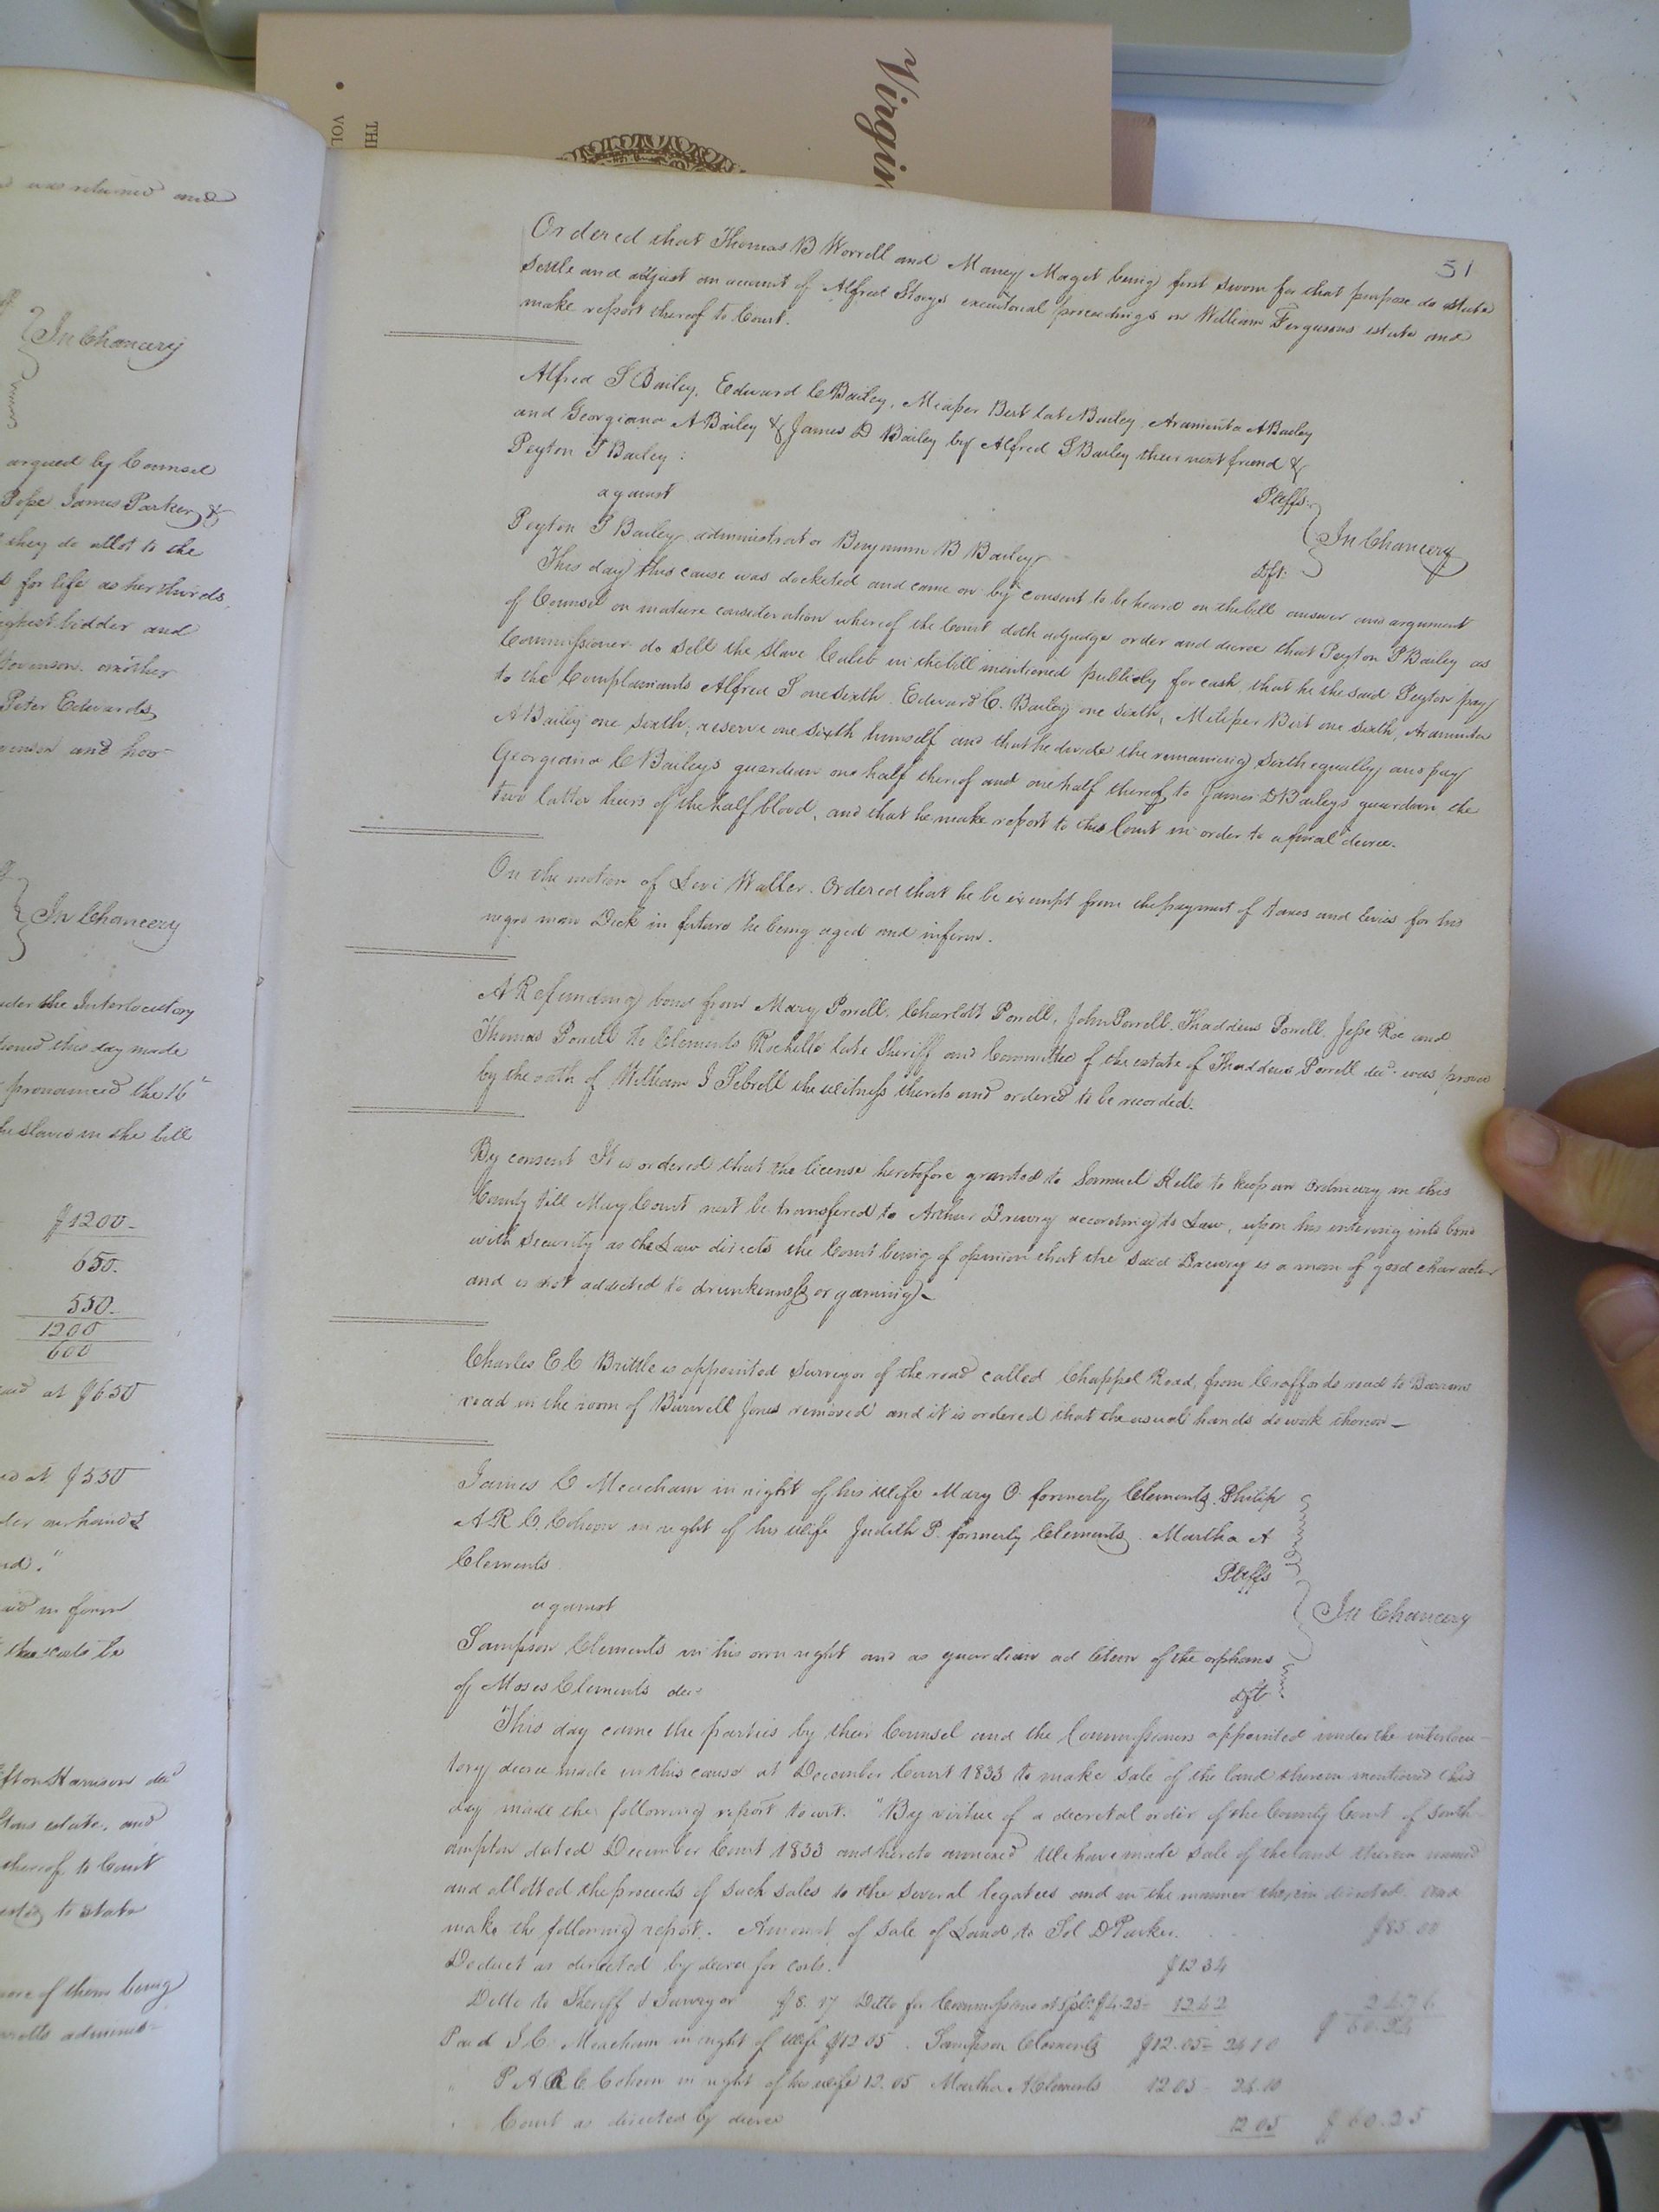 Virgin
THE
VOL
was returned and
In Chancery
argued by Counsel
Pope James Parker &
they do allot to the
for life as her thirds,
highest bidder and
another
Peter Edwards
and hoo
In Chancery
under the Interlocutory
this day made
pronounced the 16th
the slaves in the bill
$1200-
650.
550-
1200
600
at $650
at $550
under our hands
"
in form
the costs be
Harrison decd
estate, and
thereof to Court
to state
of them being
51
Ordered that Thomas B Worrell and Manry Maget being first sworn for that purpose do state
settle and adjust an account of Alfred Storys executorial proceedings on William Fergusons estate and
make report thereof to Court.
Alfred S Bailey, Edward C Bailey, Bert lat Bailey, Araminta A Bailey
and Georgiana A Bailey & James D Bailey by Alfred S Bailey their next friend &
Peyton T Bailey :
Pltffs.
against
In Chancery
Peyton T Bailey, administrator Benjamin B Bailey
Dft:
This day this cause was docketed and came on by consent to be heard on the bill answer and argument
of Counsel on mature consideration whereof the Court doth adjudge order and decree that Peyton P Bailey as
Commissioner do sell the slave Caleb in the bill mentioned publicly for cash, that he the said Peyton pay
to the Complainants Alfred S one sixth, Edward C. Bailey one sixth, Birt one sixth, Araminta
A Bailey one sixth, reserve one sixth himself and that he divide the remaining sixth equally and pay
Georgiana C Bailey's guardian one half thereof and one half thereof to James D Bailey's guardian the
two latter heirs of the half blood, and that he make report to this Court in order to a final decree.
On the motion of Levi Waller. Ordered that he be exempt from the payment of taxes and levies for his
negro man Dick in future he being aged and infirm.
A Refunding bond from Mary Powell, Charlott Powell, John Powell, Thaddeus Powell, Jesse Roe and
Thomas Powell to Clements Rochelle late Sheriff and Committee of the estate of Thaddeus Powell decd. was proved
by the oath of William J Sebrell the witness thereto and ordered to be recorded.
By consent It is ordered that the license heretofore granted to Samuel Kello to keep an Ordinary in this
County till May Court next be transfered to Arthur Drewry according to Law, upon his entering into bond
with security as the Law directs the Court being of opinion that the said Drewry is a man of good character
and is not addicted to drunkenness or gaming-
Charles E C Brittle is appointed Surveyor of the road called Chappel Road, from Craffords road to Barrows
road in the room of Burwell Jones removed and it is ordered that the usual hands do work thereon-
James C Meacham in right of his wife Mary O. formerly Clements, Philip
A R C Cohoon in right of his wife Judith P. formerly Clements. Martha A
Clements
Pltffs
against
In Chancery
Sampson Clements in his own right and as guardian ad litem of the orphans
of Moses Clements decd
Dft
This day came the parties by their Counsel and the Commissioners appointed under the interlocu-
tory decree made in this cause at December Court 1833 to make sale of the land therein mentioned this
day made the following report to wit: "By virtue of a decretal order of the County Court of South-
ampton dated December Court 1833 and hereto annexed We have made sale of the land therein named
and allotted the proceeds of such sales to the several legatees and in the manner therein directed and
make the following report. Amount of sale of Land to Sol D Parker. $85.00
Deduct as directed by decree for costs. $12 34
Ditto to Sheriff & Surveyor $8. 17 Ditto for Commissions at 5 pCt $4.25= 12.42 24.76
$60.24
Paid J. C. Meacham in right of wife $12 05. Sampson Clements $12.05= 24.10
" P A R C Cohoon in right of his wife 12.05 Martha A Clements 12 05= 24.10
" Court as directed by decree 12 05 $60.25